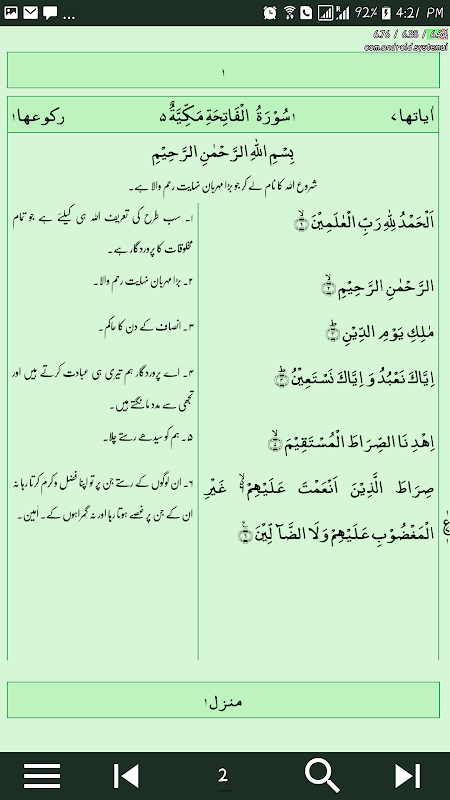 ... 92% 4:21 PM
6.76 / 6.38 / 6.50
com.android.systemui
۱
اٰیاتها ۷ ۱ سُوْرَةُ الْفَاتِحَةِ مَكِّيَّةٌ ۵ رکوعها ۱
بِسْمِ اللّٰهِ الرَّحْمٰنِ الرَّحِيْمِ
شروع اللہ کا نام لے کر جو بڑا مہربان نہایت رحم والا ہے۔
اَلْحَمْدُ لِلّٰهِ رَبِّ الْعٰلَمِيْنَۙ۝۱
۱۔ سب طرح کی تعریف اللہ ہی کیلئے ہے جو تمام
مخلوقات کا پروردگار ہے۔
الرَّحْمٰنِ الرَّحِيْمِۙ۝۲
۲۔ بڑا مہربان نہایت رحم والا۔
مٰلِكِ يَوْمِ الدِّيْنِؕ۝۳
۳۔ انصاف کے دن کا حاکم۔
اِيَّاكَ نَعْبُدُ وَ اِيَّاكَ نَسْتَعِيْنُؕ۝۴
۴۔ اے پروردگار ہم تیری ہی عبادت کرتے ہیں اور
تجھی سے مدد مانگتے ہیں۔
اِهْدِنَا الصِّرَاطَ الْمُسْتَقِيْمَۙ۝۵
۵۔ ہم کو سیدھے رستے چلا۔
صِرَاطَ الَّذِيْنَ اَنْعَمْتَ عَلَيْهِمْ۝۶ۙ غَيْرِ
الْمَغْضُوْبِ عَلَيْهِمْ وَلَا الضَّآلِّيْنَ۝۷
۶۔ ان لوگوں کے رستے جن پر تو اپنا فضل و کرم کرتا رہا نہ
ان کے جن پر غصے ہوتا رہا اور نہ گمراہوں کے۔ اٰمین۔
ع
منزل ۱
2